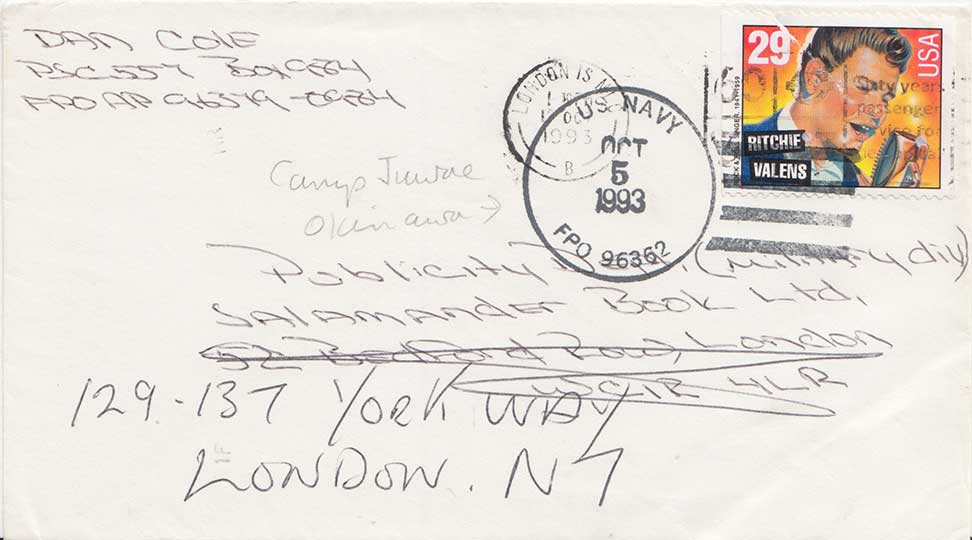 DAN COLE
PSC 557 Box 984
FPO AP 96379-0984
LONDON IS N
1993
B
US NAVY
OCT
5
1993
FPO 96362
29
USA
RITCHIE
VALENS
ixty years
passenger
vice for
Camp
Okinawa →
Publicity (military div)
SALAMANDER Book Ltd,
52 Bedford Row, London
WC1R 4LR
129-137 York WAY
LONDON. N7